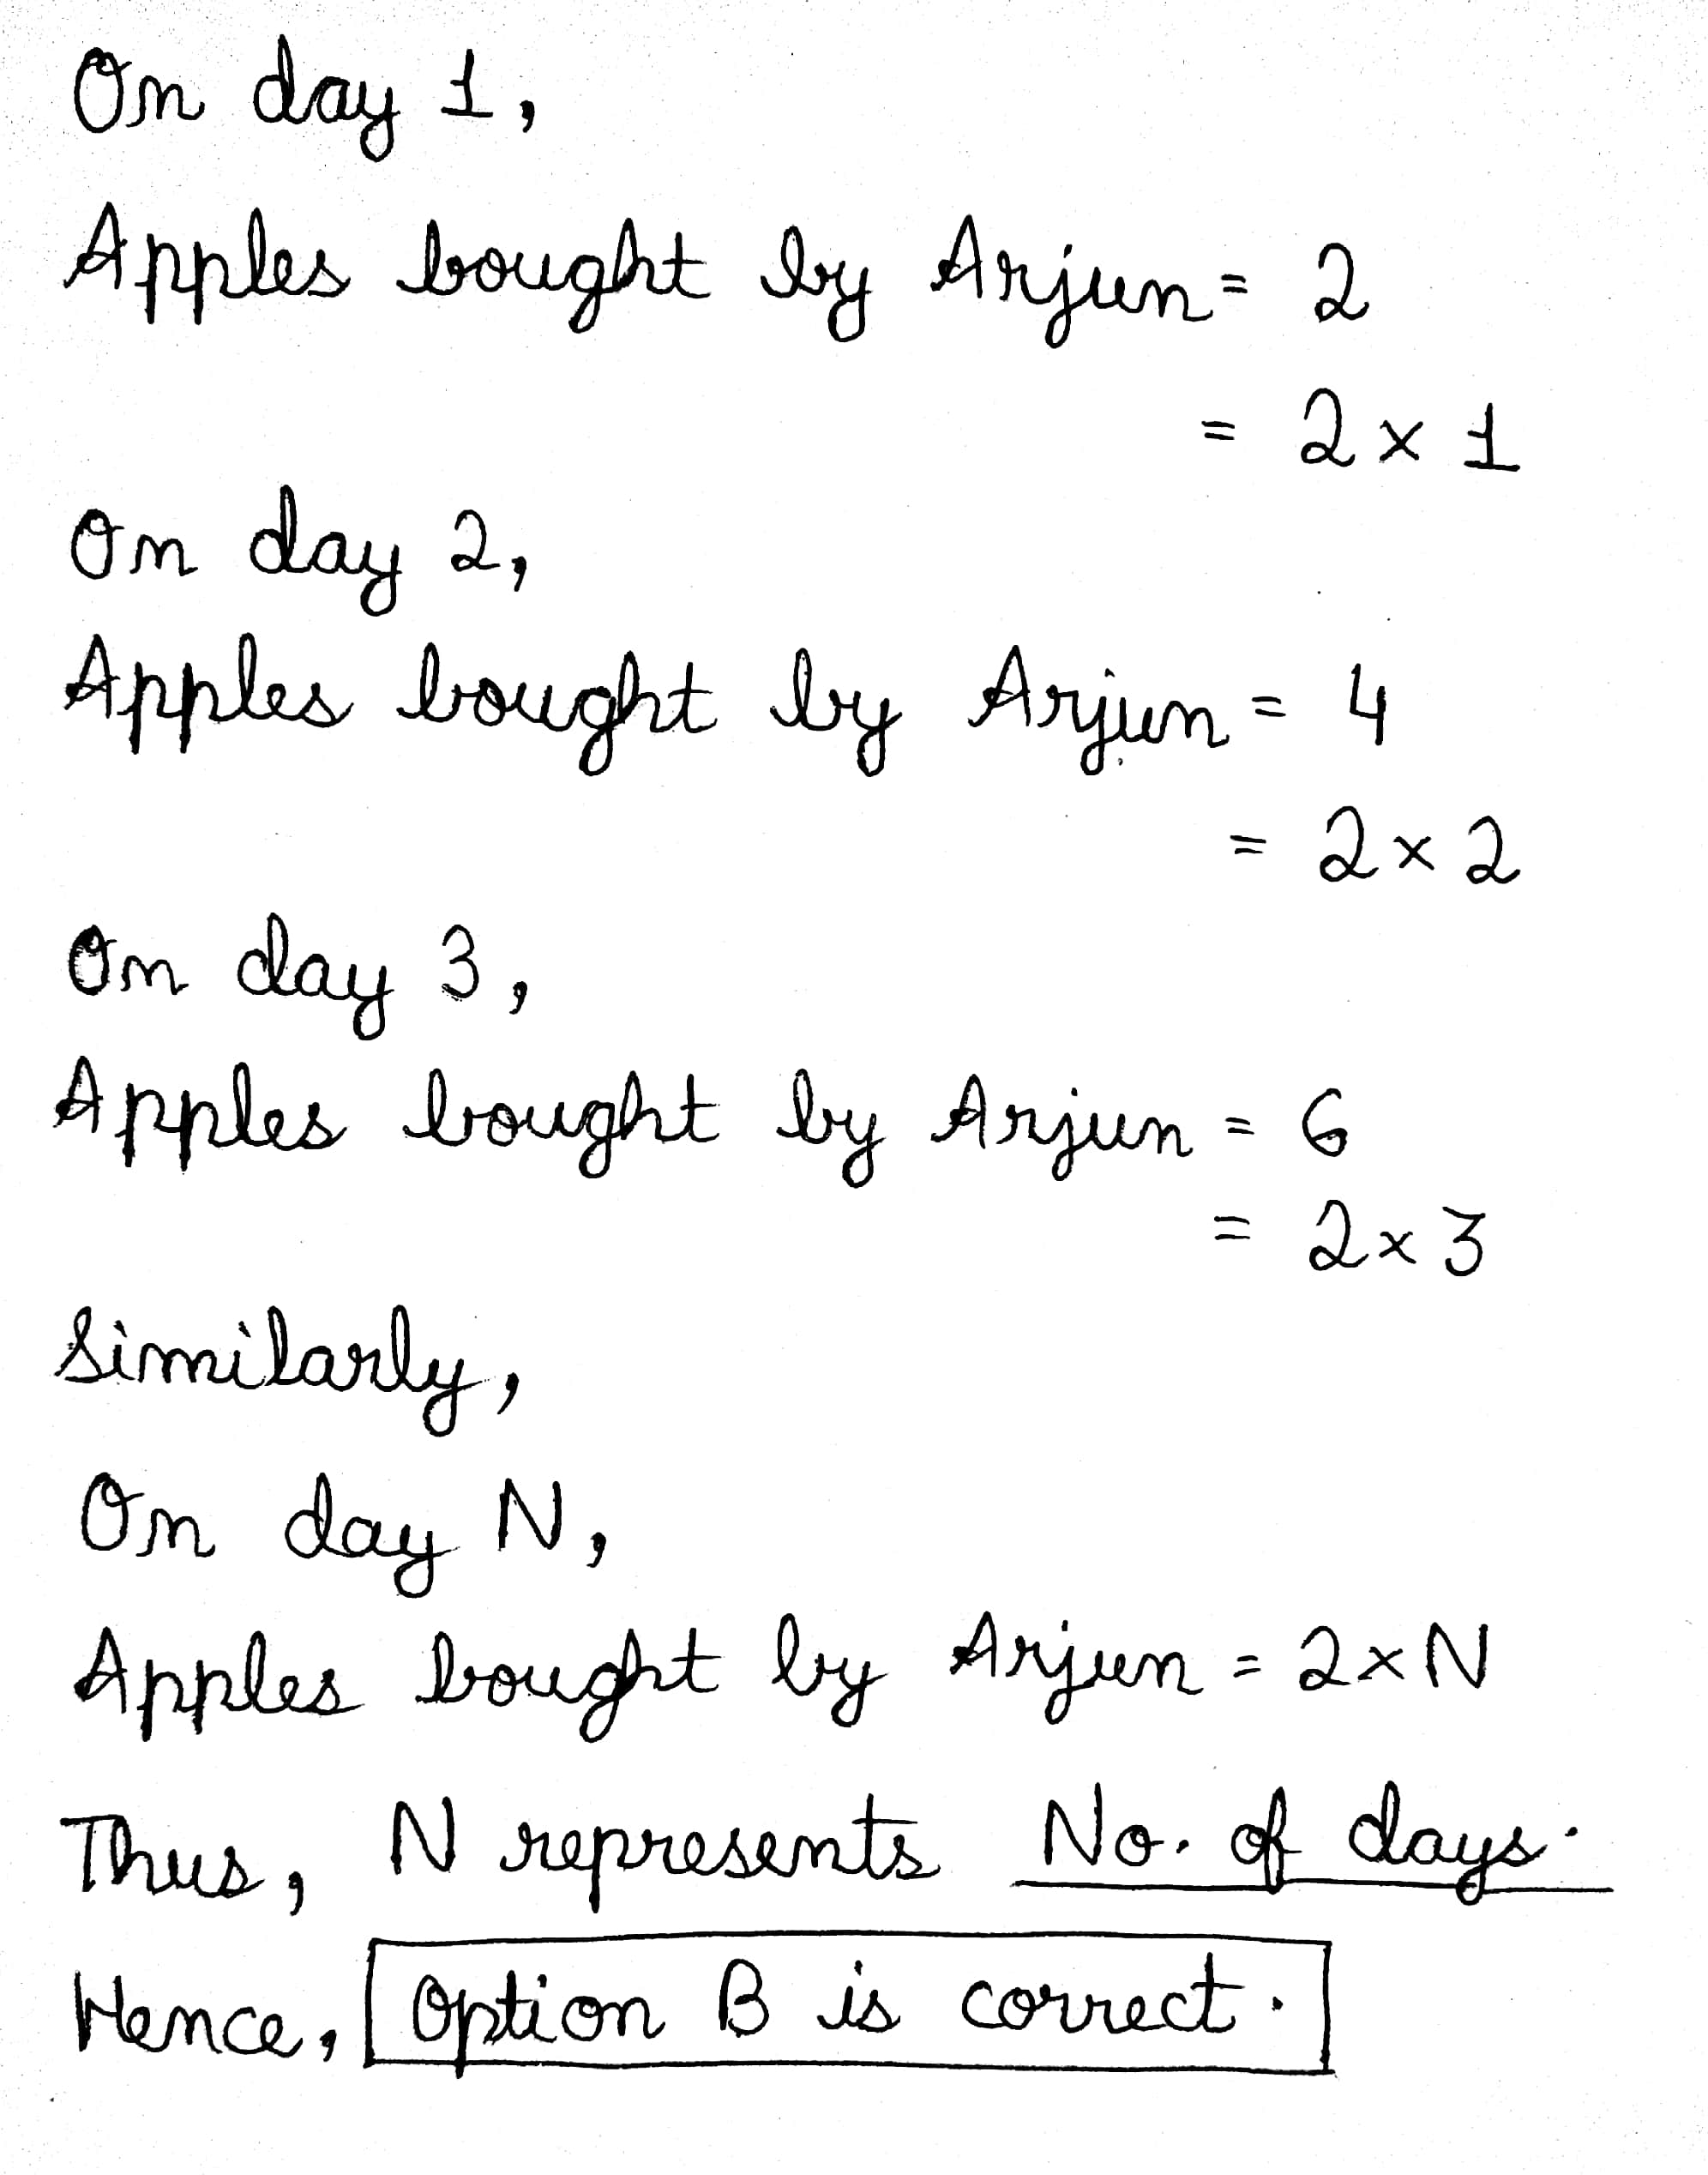 On day 1,
Apples bought by Arjun = 2
= 2 × 1
On day 2,
Apples bought by Arjun = 4
= 2 × 2
On day 3,
Apples bought by Arjun = 6
= 2 × 3
Similarly,
On day N,
Apples bought by Arjun = 2 × N
Thus, N represents No. of days.
Hence, Option B is correct.